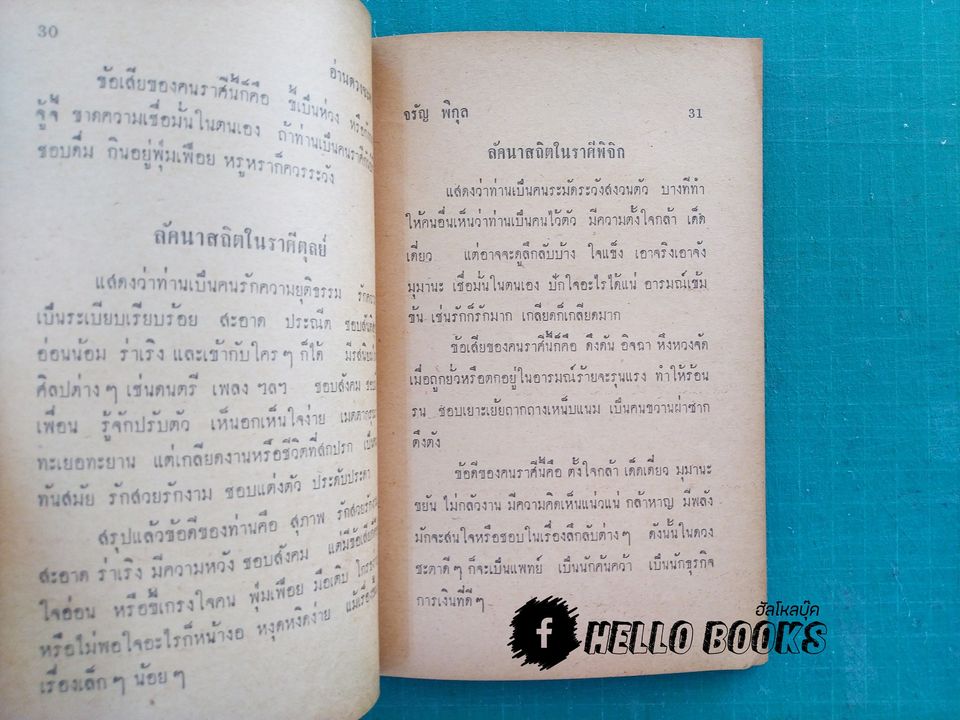 30
อ่านดวงชะตา
ข้อเสียของคนราศีนี้ก็คือ ขี้เป็นห่วง หรือ
จู้จี้ ขาดความเชื่อมั่นในตนเอง ถ้าท่านเป็นคนราศีนี้
ชอบดื่ม กินอยู่พุ่มเฟือย หรูหราก็ควรระวัง
ลัคนาสถิตในราศีตุลย์
แสดงว่าท่านเป็นคนรักความยุติธรรม รัก
เป็นระเบียบเรียบร้อย สะอาด ประณีต ชอบ
อ่อนน้อม ร่าเริง และเข้ากับใครๆ ก็ได้ มีรสนิยม
ศิลปต่างๆ เช่นดนตรี เพลง ฯลฯ ชอบสังคม ชอบ
เพื่อน รู้จักปรับตัว เห็นอกเห็นใจง่าย เมตตา
ทะเยอทะยาน แต่เกลียดงานหรือชีวิตที่สกปรก
ทันสมัย รักสวยรักงาม ชอบแต่งตัว ประดับประดา
สรุปแล้วข้อดีของท่านคือ สุภาพ รักสวยรัก
สะอาด ร่าเริง มีความหวัง ชอบสังคม แต่มีข้อเสีย
ใจอ่อน หรือขี้เกรงใจคน พุ่มเฟือย มือเติบ
หรือไม่พอใจอะไรก็หน้างอ หงุดหงิดง่าย แม้เรื่อง
เรื่องเล็กๆ น้อยๆ
จรัญ พิกุล 31
ลัคนาสถิตในราศีพิจิก
แสดงว่าท่านเป็นคนระมัดระวังสงวนตัว บางทีทำ
ให้คนอื่นเห็นว่าท่านเป็นคนไว้ตัว มีความตั้งใจกล้า เด็ด
เดี่ยว แต่อาจจะดูลึกลับบ้าง ใจแข็ง เอาจริงเอาจัง
มุมานะ เชื่อมั่นในตนเอง ปักใจอะไรได้แน่ อารมณ์เข้ม
ข้น เช่นรักก็รักมาก เกลียดก็เกลียดมาก
ข้อเสียของคนราศีนี้ก็คือ ดึงดัน อิจฉา หึงหวงจัด
เมื่อถูกยั่วหรือตกอยู่ในอารมณ์ร้ายจะรุนแรง ทำให้ร้อน
รน ชอบเยาะเย้ยถากถางเหน็บแนม เป็นคนขวานผ่าซาก
ตึงตัง
ข้อดีของคนราศีนี้คือ ตั้งใจกล้า เด็ดเดี่ยว มุมานะ
ขยัน ไม่กลัวงาน มีความคิดเห็นแน่วแน่ กล้าหาญ มีพลัง
มักจะสนใจหรือชอบในเรื่องลึกลับต่างๆ ดังนั้นในดวง
ชะตาดีๆ ก็จะเป็นแพทย์ เป็นนักค้นคว้า เป็นนักธุรกิจ
การเงินที่ดีๆ
ฮัลโหลบุ๊ค
f HELLO BOOKS